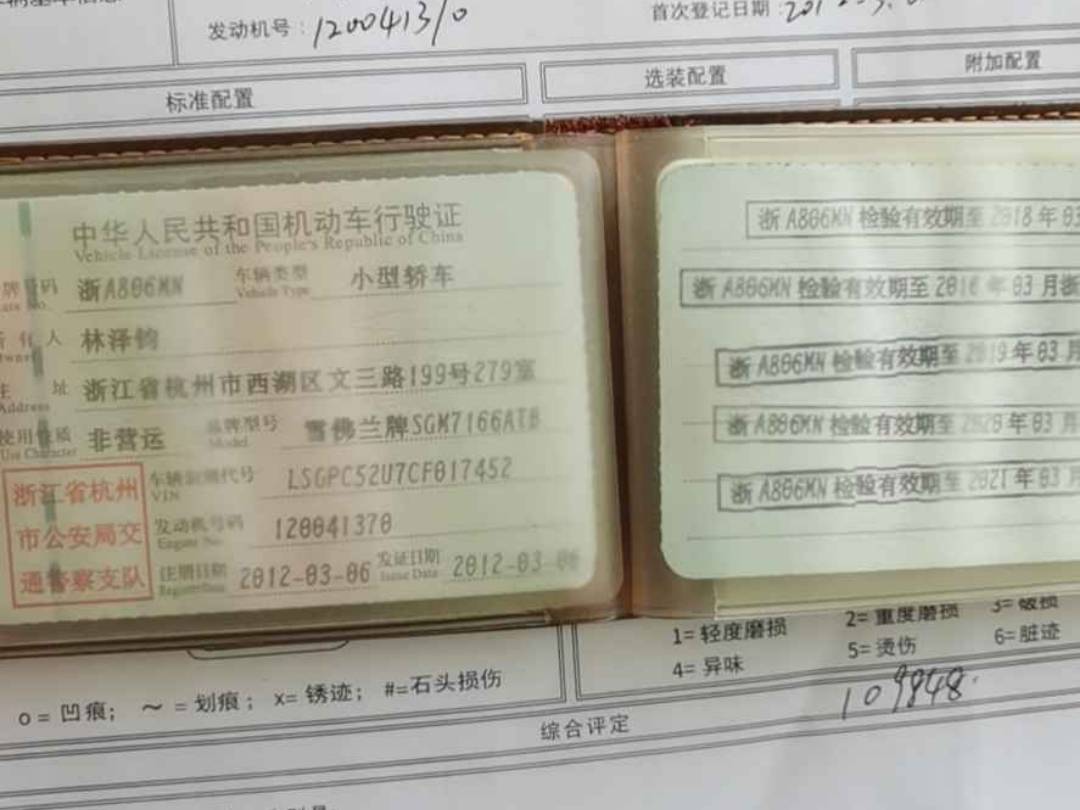 发动机号：120041310
首次登记日期：
标准配置
选装配置
附加配置
中华人民共和国机动车行驶证
Vehicle License of the People's Republic of China
号码 浙A806MN 车辆类型 小型轿车
Vehicle Type
所有人 林泽钧
Owner
住址 浙江省杭州市西湖区文三路199号279室
Address
使用性质 非营运 品牌型号 雪佛兰牌SGM7166ATB
Use Character Model
车辆识别代号 LSGPC52U7CF017452
VIN
发动机号码 120041370
Engine No.
注册日期 2012-03-06 发证日期 2012-03-06
Register Date Issue Date
浙江省杭州
市公安局交
通警察支队
浙A806MN 检验有效期至 2018年03
浙A806MN 检验有效期至 2016年03月浙
浙A806MN 检验有效期至 2019年03月
浙A806MN 检验有效期至 2020年03月
浙A806MN 检验有效期至 2021年03月
1=轻度磨损 2=重度磨损 3=破损
4=异味 5=烫伤 6=脏迹
o=凹痕； ～=划痕； x=锈迹； #=石头损伤
109848
综合评定